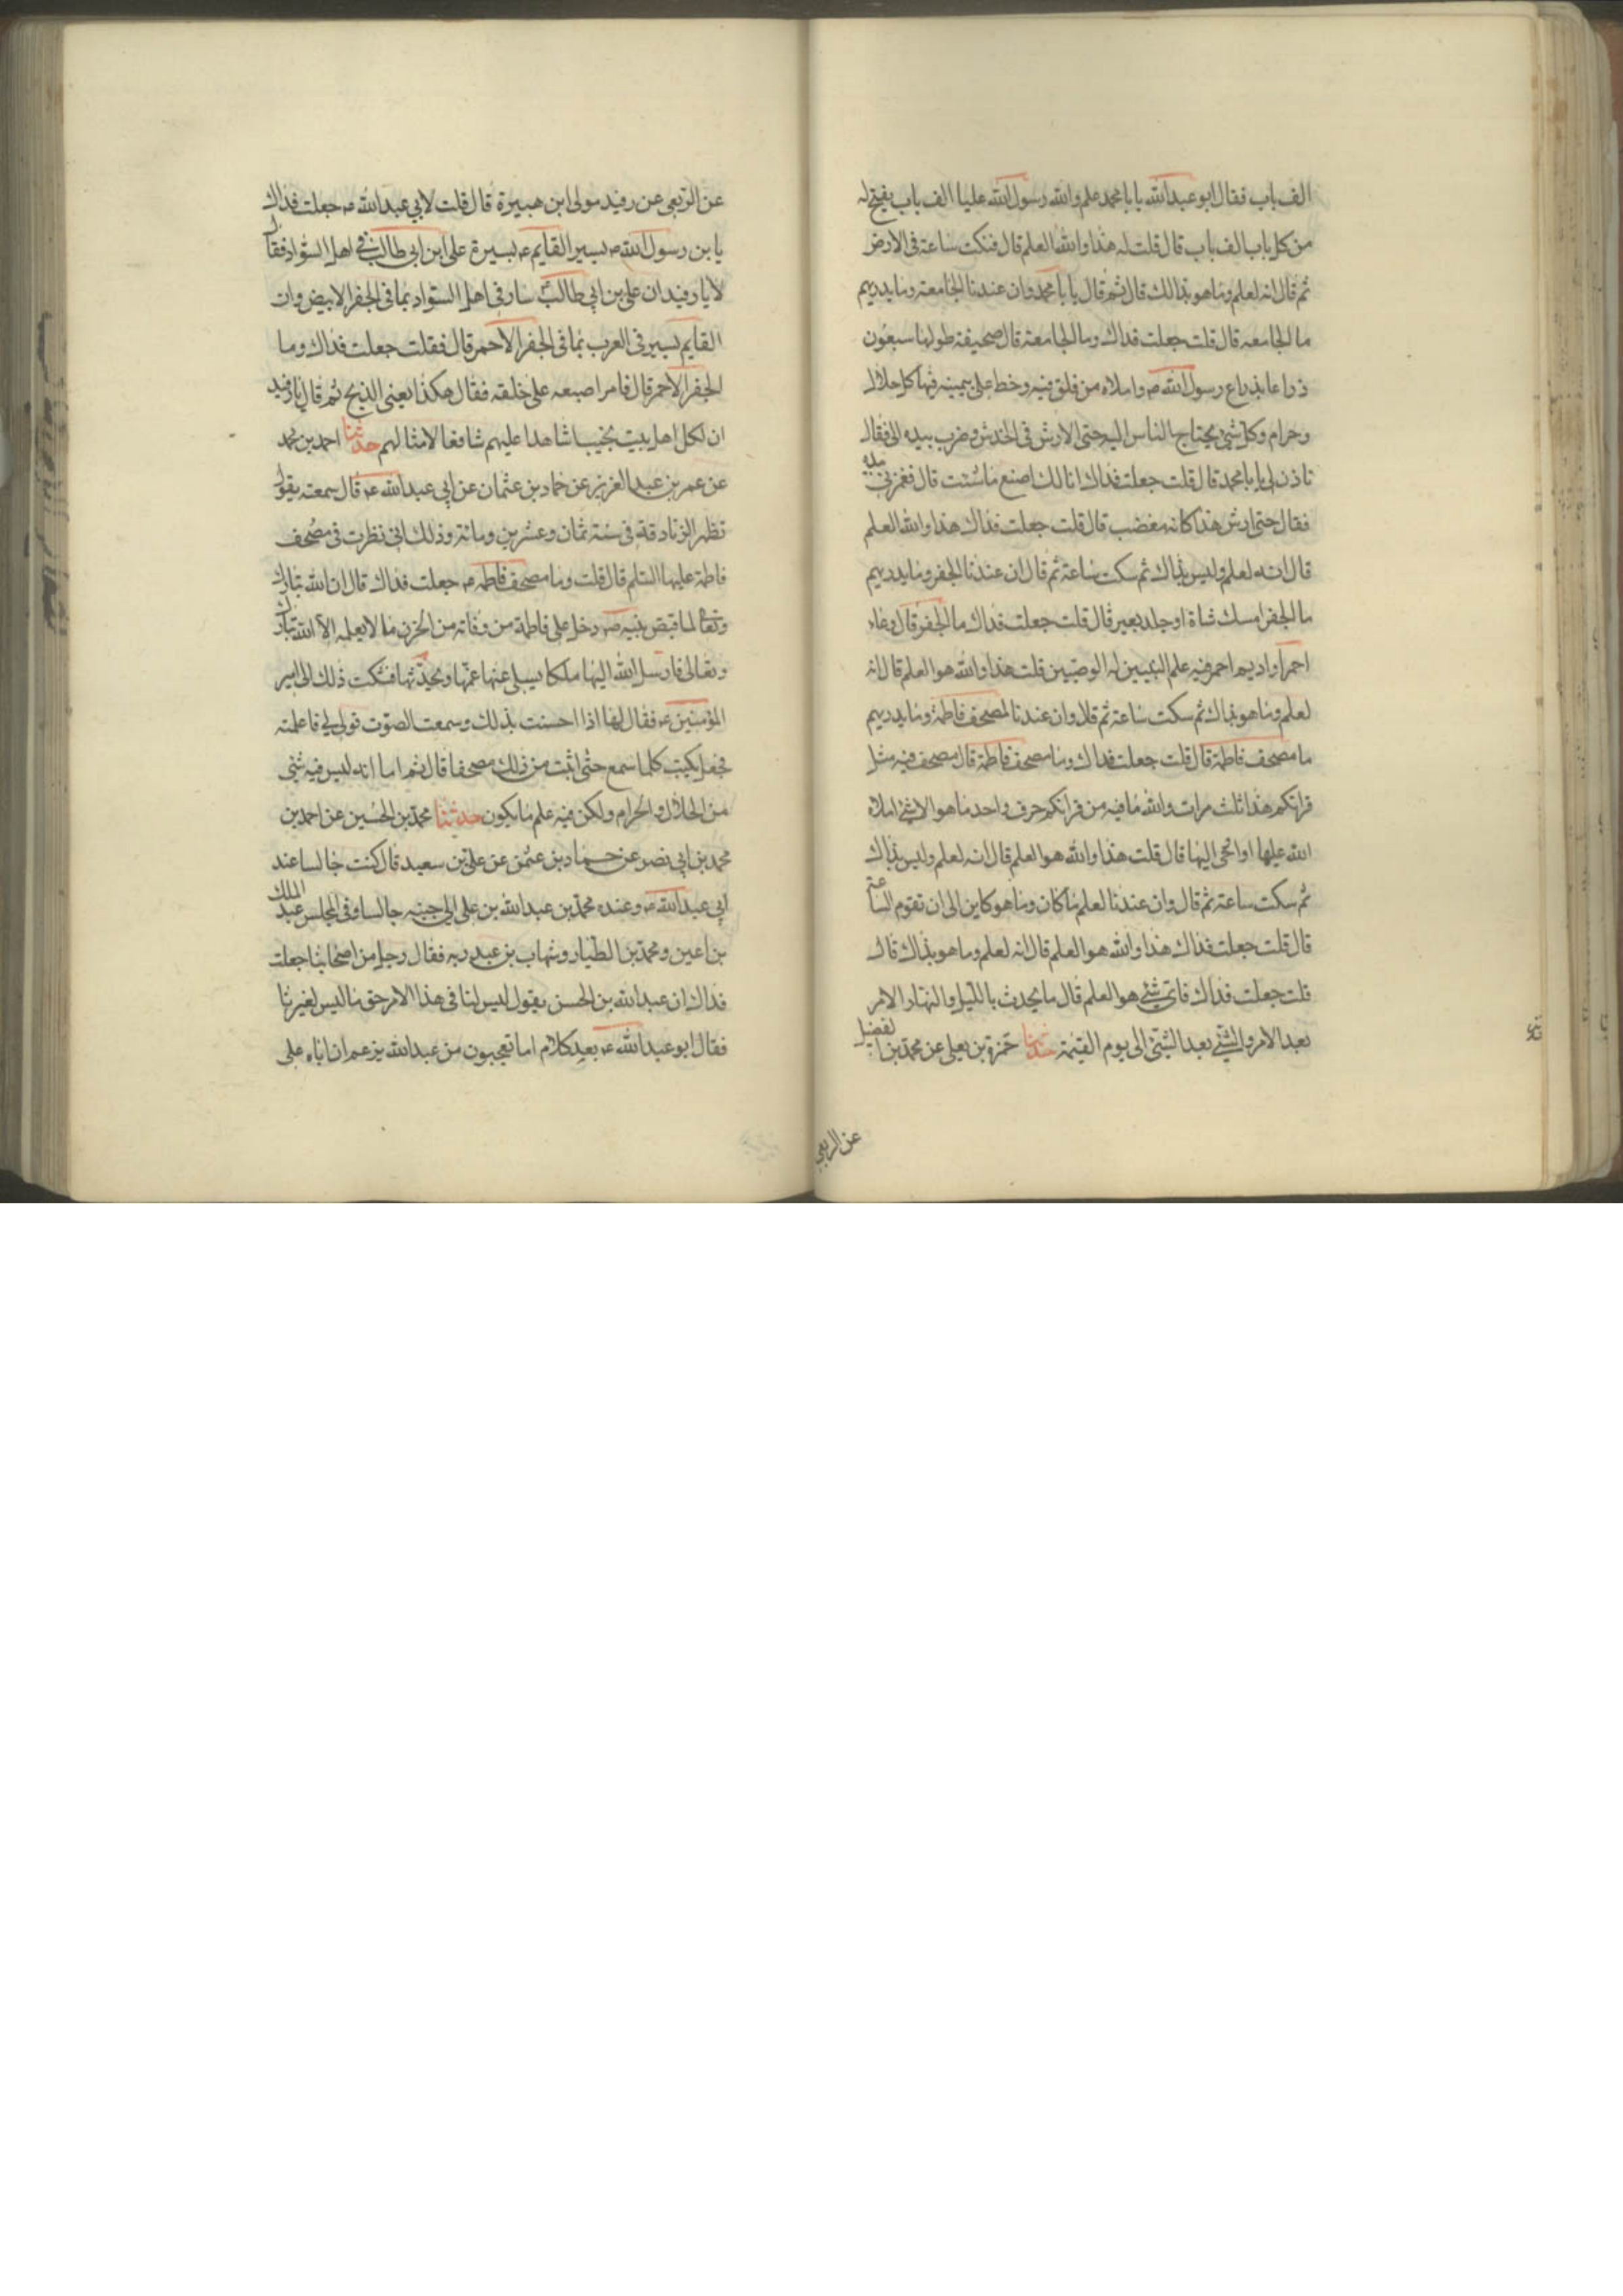 الف باب فقال ابو عبدالله يا با محمد علم والله رسول الله عليا الف باب يفتح له
من كل باب الف باب قال قلت له هذا والله العلم قال فنكت ساعة فى الارض
ثم قال انه لعلم وما هو بذالك قال ثم قال يا با محمد وان عندنا الجامعة وما يدريهم
ما الجامعه قال قلت جعلت فداك وما الجامعة قال صحيفة طولها سبعون
ذراعا بذراع رسول الله ص واملاه من فلق فيه وخط على بيمينه فيها كل حلال
وحرام وكل شئ يحتاج الناس اليه حتى الارش فى الخدش وضرب بيده الى فقال
تاذن لى يا با محمد قال قلت جعلت فداك انا لك اصنع ما شئت قال فغمزنى بيده
فقال حتى ارش هذا كانه مغضب قال قلت جعلت فداك هذا والله العلم
قال انه لعلم وليس بذاك ثم سكت ساعة ثم قال ان عندنا الجفر وما يدريهم
ما الجفر امسك شاة او جلد بعير قال قلت جعلت فداك ما الجفر قال وعاء
احمر او اديم احمر فيه علم النبيين له الوصيين قلت هذا والله هو العلم قال انه
لعلم وما هو بذاك ثم سكت ساعة ثم قلا وان عندنا لمصحف فاطمة وما يدريهم
ما مصحف فاطمة قال قلت جعلت فداك وما مصحف فاطمة قال مصحف فيه مثل
قرانكم هذا ثلث مرات والله ما فيه من قرانكم حرف واحد ما هو الا شئ املاه
الله عليها او اوحى اليها قال قلت هذا والله هو العلم قال انه لعلم وليس بذاك
ثم سكت ساعة ثم قال وان عندنا لعلم ما كان وما هو كاين الى ان تقوم الساعة
قال قلت جعلت فداك هذا والله هو العلم قال انه لعلم وما هو بذاك قال
قلت جعلت فداك فاى شئ هو العلم قال ما يحدث بالليل والنهار الامر
بعد الامر والشئ بعد الشئ الى يوم القيمة حدثنا حمزة بن يعلى عن محمد بن الفضيل
عن الربعى
عن الربعى عن رفيد مولى ابن هبيرة قال قلت لابى عبدالله ص جعلت فداك
يابن رسول الله ص يسير القايم ع بسيرة على ابن ابى طالب فى اهل السواد فقال
لا يا رفيد ان على بن ابى طالب سار فى اهل السواد بما فى الجفر الابيض وان
القايم يسير فى العرب بما فى الجفر الاحمر قال فقلت جعلت فداك وما
الجفر الاحمر قال فامر اصبعه على حلقه فقال هكذا يعنى الذبح ثم قال يا رفيد
ان لكل اهل بيت نجيبا شاهدا عليهم شافعا لامثالهم حدثنا احمد بن محمد
عن عمر بن عبد العزيز عن حماد بن عثمان عن ابى عبدالله ع قال سمعته يقول
تظهر الزنادقة فى سنة ثمان وعشرين ومائة وذلك انى نظرت فى مصحف
فاطمة عليها السلم قال قلت وما مصحف فاطمه ص جعلت فداك قال ان الله تبارك
وتعالى لما قبض نبيه ص دخل على فاطمة من وفاته من الحزن ما لا يعلمه الا الله تبارك
وتعالى فارسل الله اليها ملكا يسلى عنها غمها ويحدثها فشكت ذلك الى امير
المؤمنين ع فقال لها اذا احست بذلك وسمعت الصوت قولى لى فاعلمته
فجعل يكتب كلما سمع حتى اثبت من ذلك مصحفا قال ثم اما انه ليس فيه شئ
من الحلال والحرام ولكن فيه علم ما يكون حدثنا محمد بن الحسين عن احمد بن
محمد بن ابى نصر عن حماد بن عثمن عن على بن سعيد قال كنت جالسا عند
ابى عبدالله ع وعنده محمد بن عبدالله بن على الى جنبه جالسا وفى المجلس عبد الملك
بن اعين ومحمد بن الطيار وشهاب بن عبد ربه فقال رجل من اصحابنا جعلت
فداك ان عبدالله بن الحسن يقول ليس لنا فى هذا الامر حق ما ليس لغيرنا
فقال ابو عبدالله ع بعد كلام اما تعجبون من عبدالله يزعم ان اباه على